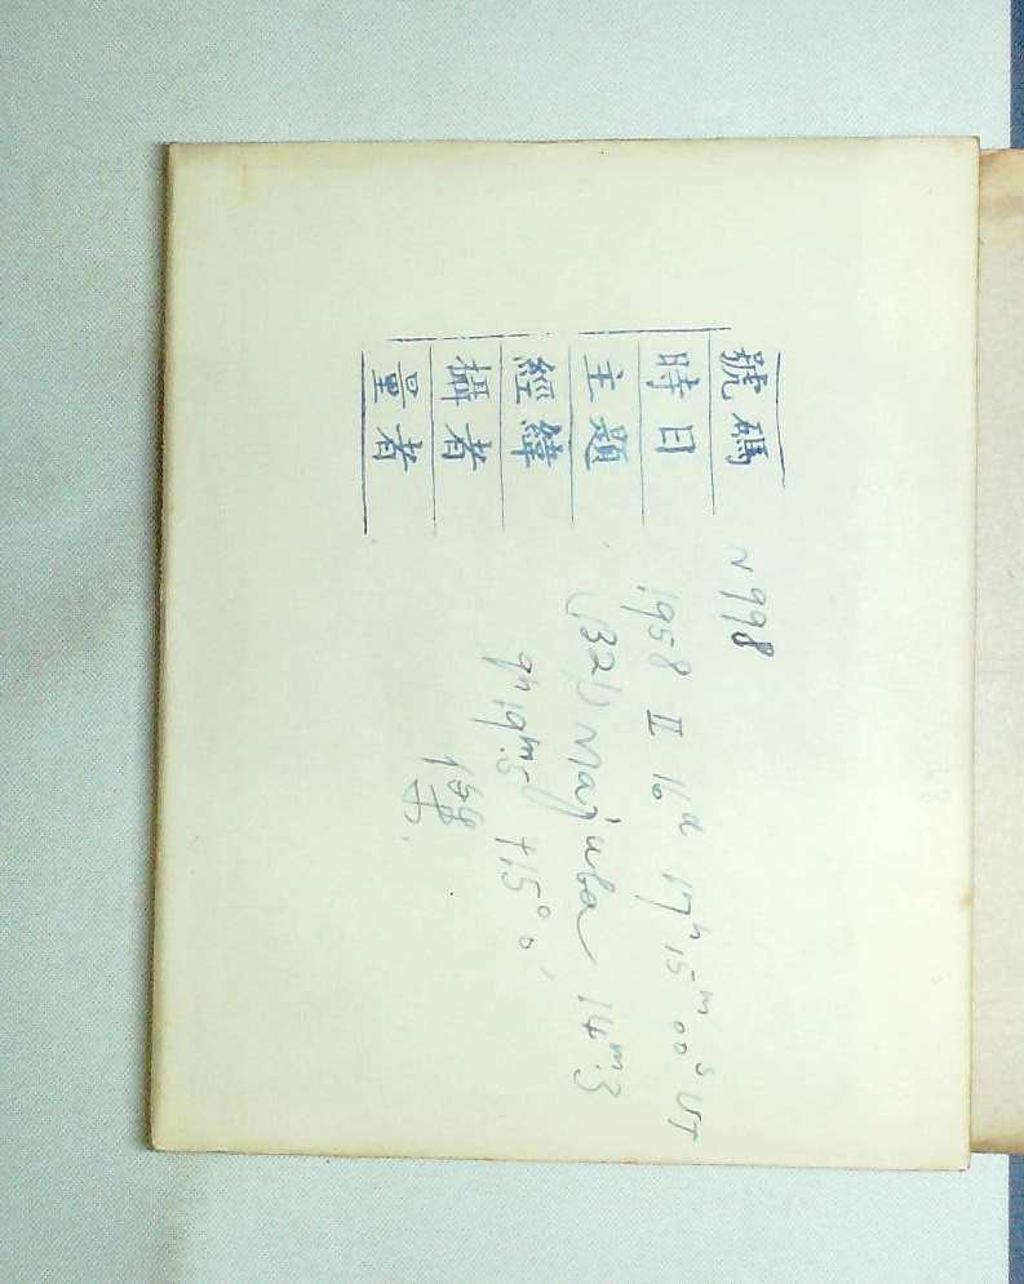 號碼 N998
時日 1958 II 16d 17h 15m 00s UT
主題 (1321) Majuba 14m.3
經緯 9h19m.5 +15° 0'
攝者
量者